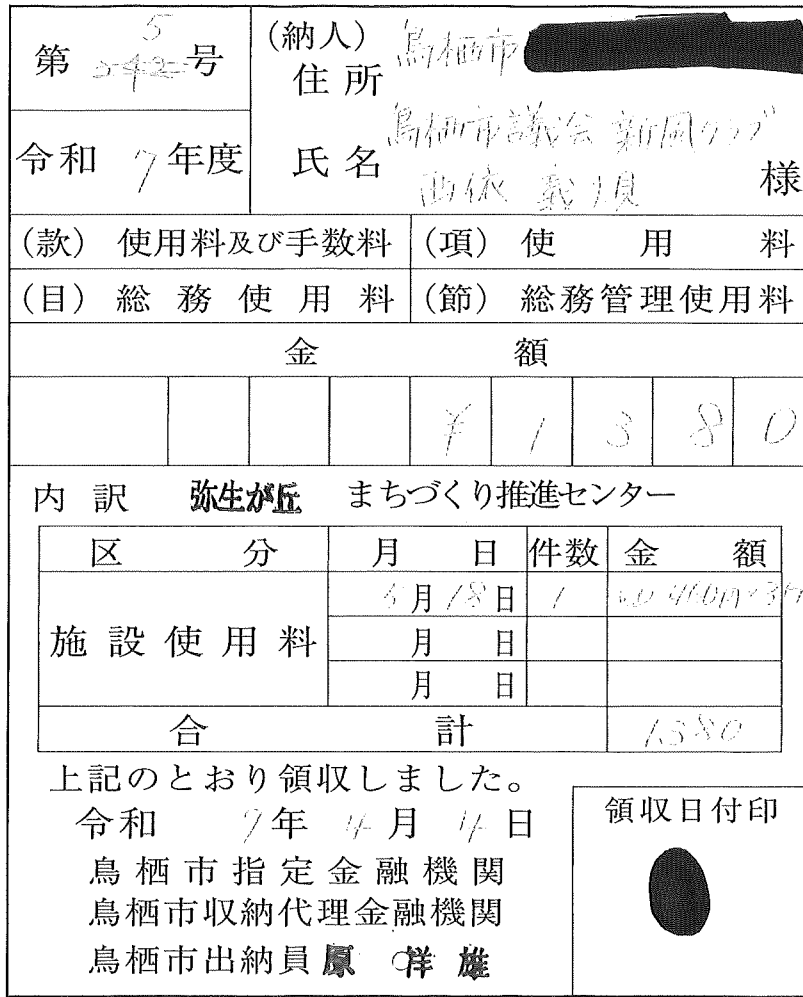 第 5 号
(納人)
住所 鳥栖市
令和 7 年度
氏名 鳥栖市議会 新風クラブ
西依 義規 様
(款) 使用料及び手数料 (項) 使用料
(目) 総務使用料 (節) 総務管理使用料
金額
¥1380
内訳 弥生が丘 まちづくり推進センター
区分 月日 件数 金額
施設使用料 月18日 1 460円×3H
月 日
月 日
合計 1,380
上記のとおり領収しました。
令和 7年 4月 4日
領収日付印
鳥栖市指定金融機関
鳥栖市収納代理金融機関
鳥栖市出納員 原 洋雄